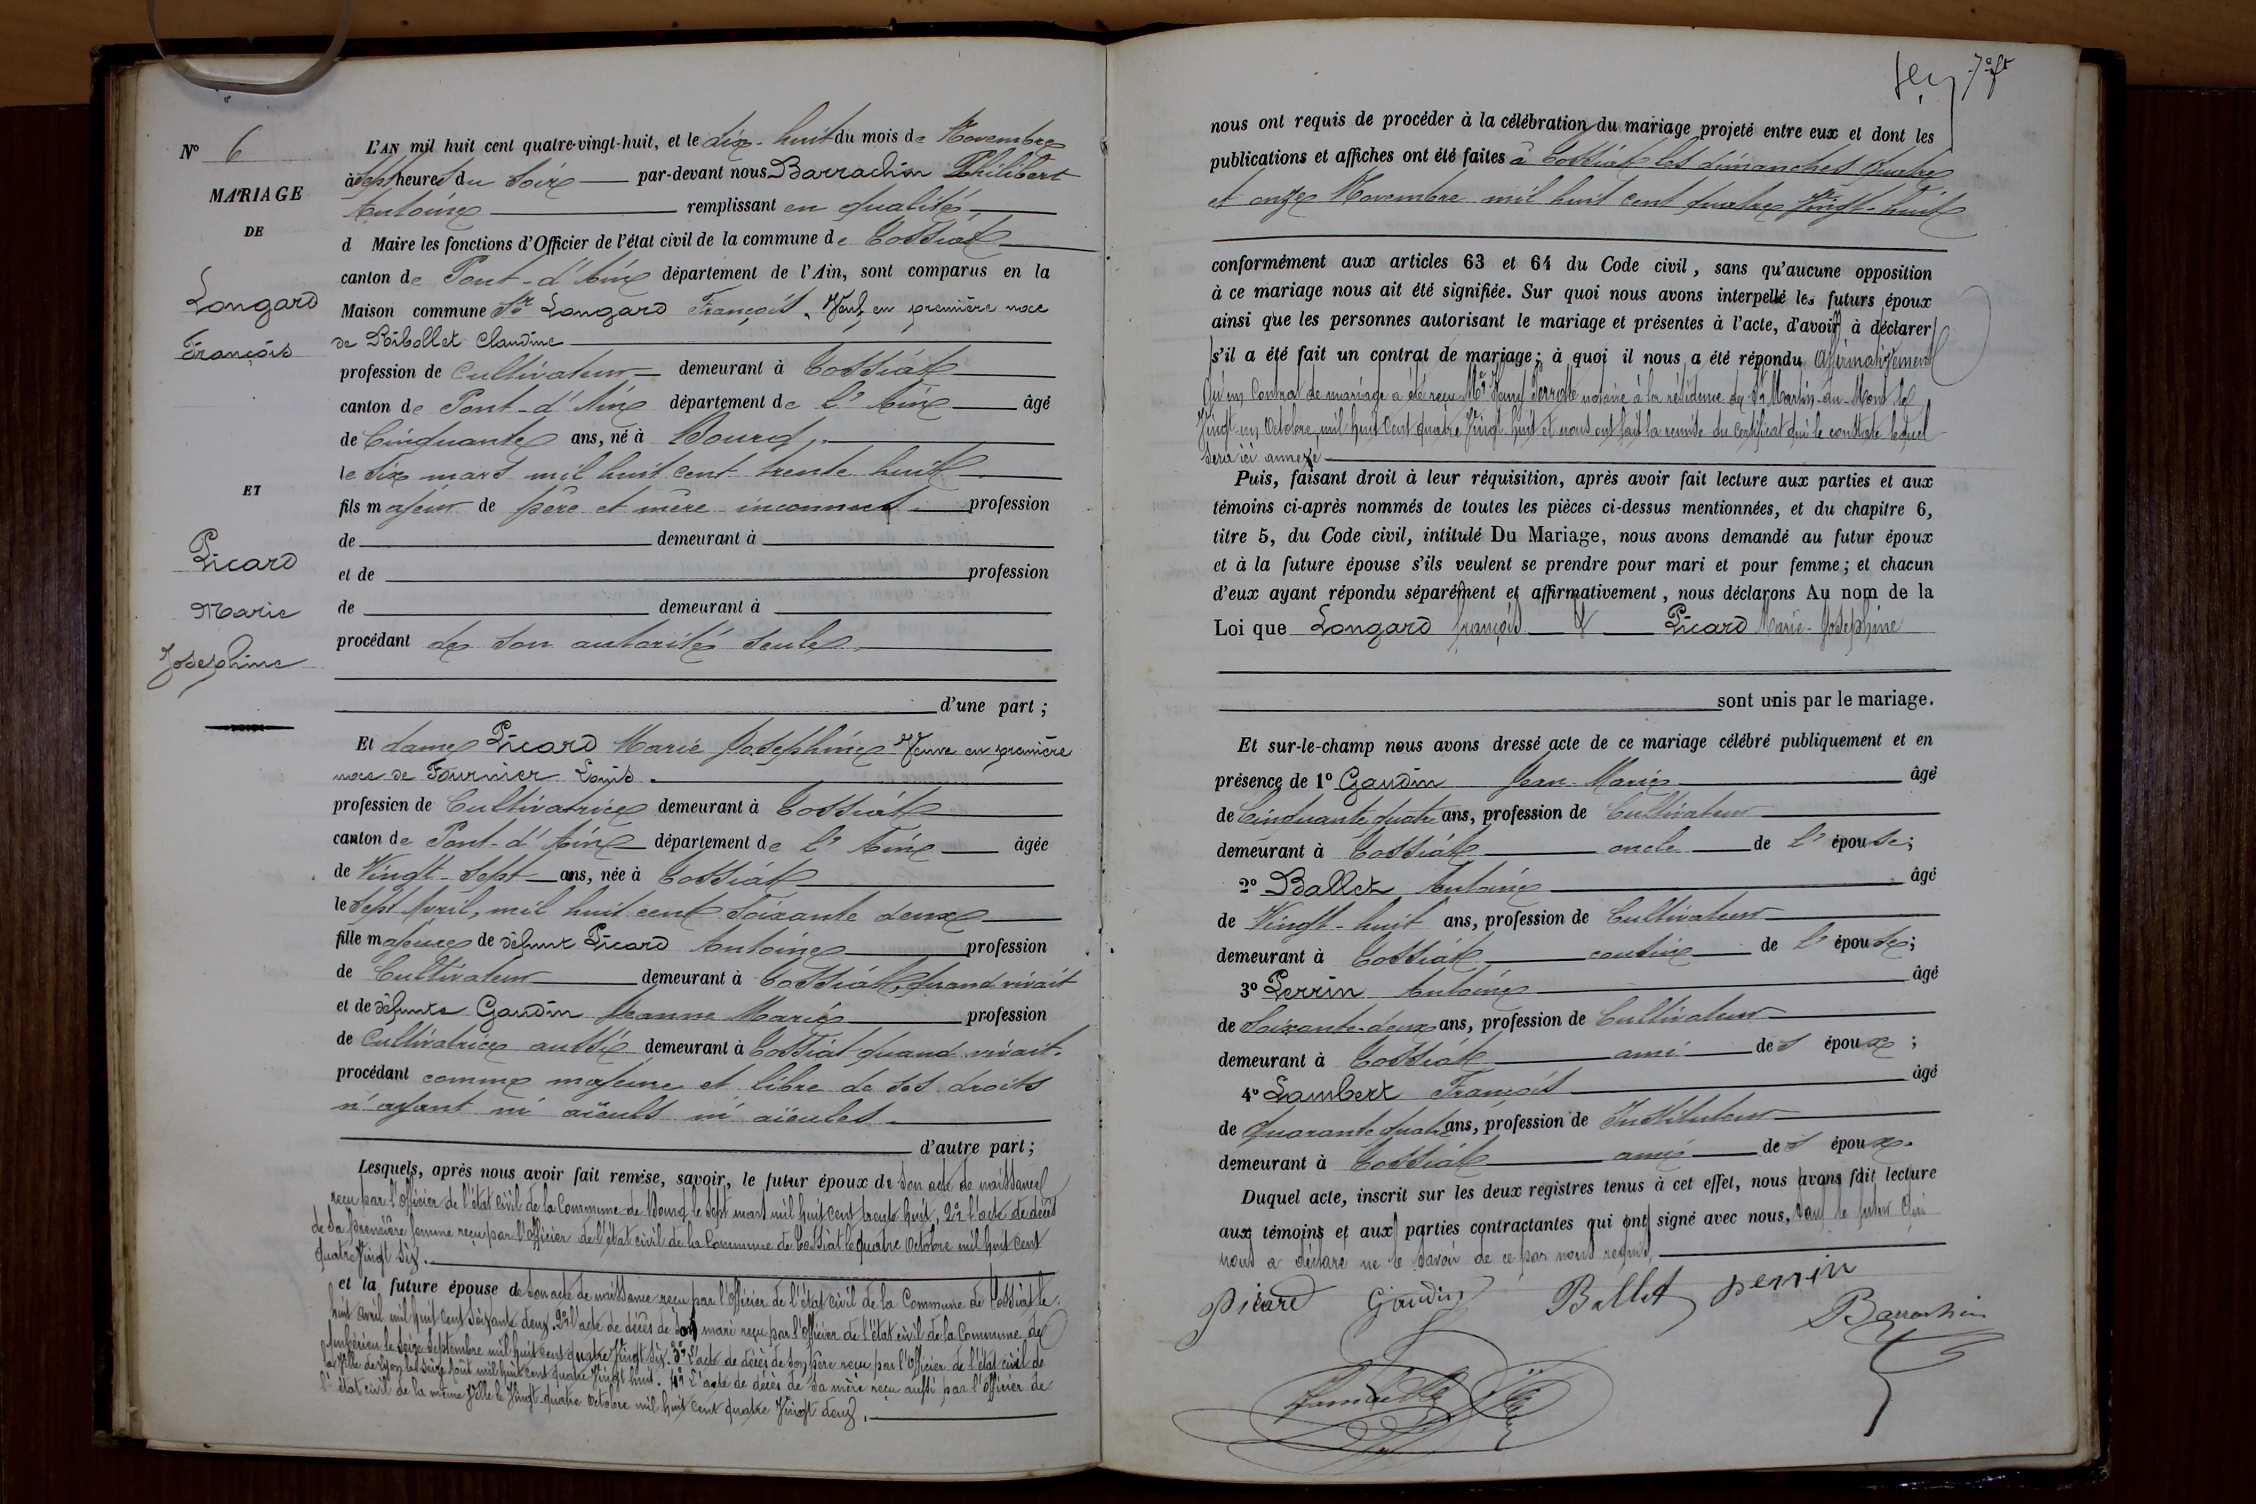 N° 6
MARIAGE
DE
Longard
François
ET
Picard
Marie
Joséphine
L'AN mil huit cent quatre-vingt-huit, et le dix-huit du mois de Novembre
à sept heures du soir par-devant nous Barrachin Philibert
Antoine remplissant en qualité
d Maire les fonctions d'Officier de l'état civil de la commune de Tossiat
canton de Pont-d'Ain département de l'Ain, sont comparus en la
Maison commune Sr Longard François, Veuf en première noce
de Ribollet Claudine
profession de Cultivateur demeurant à Tossiat
canton de Pont-d'Ain département de l'Ain âgé
de Cinquante ans, né à Bourg,
le six mars mil huit cent trente huit
fils majeur de père et mère inconnus profession
de demeurant à
et de profession
de demeurant à
procédant de son autorité seule,
d'une part;
Et dame Picard Marie Joséphine Veuve en première
noce de Fournier Louis.
profession de Cultivatrice demeurant à Tossiat
canton de Pont-d'Ain département de l'Ain âgée
de Vingt-sept ans, née à Tossiat
le sept Avril, mil huit cent soixante deux
fille majeure de défunt Picard Antoine profession
de Cultivateur demeurant à Tossiat, quand vivait
et de défunte Gaudin Jeanne Marie profession
de Cultivatrice aussi demeurant à Tossiat quand vivait.
procédant comme majeure et libre de ses droits
n'ayant ni aïeuls ni aïeules.
d'autre part;
Lesquels, après nous avoir fait remise, savoir, le futur époux de son acte de naissance
reçu par l'officier de l'état civil de la Commune de Bourg le sept mars mil huit cent trente huit, 2° l'acte de décès
de sa première femme reçu par l'officier de l'état civil de la Commune de Tossiat le quatre octobre mil huit cent
quatre Vingt six.
et la future épouse de son acte de naissance reçu par l'officier de l'état civil de la Commune de Tossiat le
huit avril mil huit cent soixante deux. 2° l'acte de décès de son mari reçu par l'officier de l'état civil de la Commune de
Ambérieu le seize septembre mil huit cent quatre Vingt six. 3° L'acte de décès de son père reçu par l'officier de l'état civil de
la ville de Lyon le seize août mil huit cent quatre Vingt huit. 4° L'acte de décès de sa mère reçu aussi par l'officier de
l'état civil de la même Ville le Vingt-quatre octobre mil huit cent quatre Vingt deux.
nous ont requis de procéder à la célébration du mariage projeté entre eux et dont les
publications et affiches ont été faites à Tossiat les dimanches quatre
et onze Novembre mil huit cent quatre Vingt-huit
conformément aux articles 63 et 64 du Code civil, sans qu'aucune opposition
à ce mariage nous ait été signifiée. Sur quoi nous avons interpellé les futurs époux
ainsi que les personnes autorisant le mariage et présentes à l'acte, d'avoir à déclarer
s'il a été fait un contrat de mariage; à quoi il nous a été répondu Affirmativement
Qu'un Contrat de mariage a été reçu Me notaire à la résidence de St Martin-du-Mont le
Vingt-un Octobre, mil huit Cent quatre Vingt huit et nous ont fait la remise du certificat qui le constate lequel
sera ici annexé
Puis, faisant droit à leur réquisition, après avoir fait lecture aux parties et aux
témoins ci-après nommés de toutes les pièces ci-dessus mentionnées, et du chapitre 6,
titre 5, du Code civil, intitulé Du Mariage, nous avons demandé au futur époux
et à la future épouse s'ils veulent se prendre pour mari et pour femme; et chacun
d'eux ayant répondu séparément et affirmativement, nous déclarons Au nom de la
Loi que Longard François & Picard Marie-Joséphine
sont unis par le mariage.
Et sur-le-champ nous avons dressé acte de ce mariage célébré publiquement et en
présence de 1° Gaudin Jean-Marie âgé
de Cinquante quatre ans, profession de Cultivateur
demeurant à Tossiat oncle de l'épouse;
2° Ballet Antoine âgé
de Vingt-huit ans, profession de Cultivateur
demeurant à Tossiat cousin de l'épouse;
3° Perrin Antoine âgé
de Soixante-deux ans, profession de Cultivateur
demeurant à Tossiat ami des époux;
4° Lambert François âgé
de quarante quatre ans, profession de Instituteur
demeurant à Tossiat ami des époux.
Duquel acte, inscrit sur les deux registres tenus à cet effet, nous avons fait lecture
aux témoins et aux parties contractantes qui ont signé avec nous, sauf le futur qui
nous a déclaré ne le savoir de ce par nous requis.
Picard Gaudin Ballet perrin
Barrachin